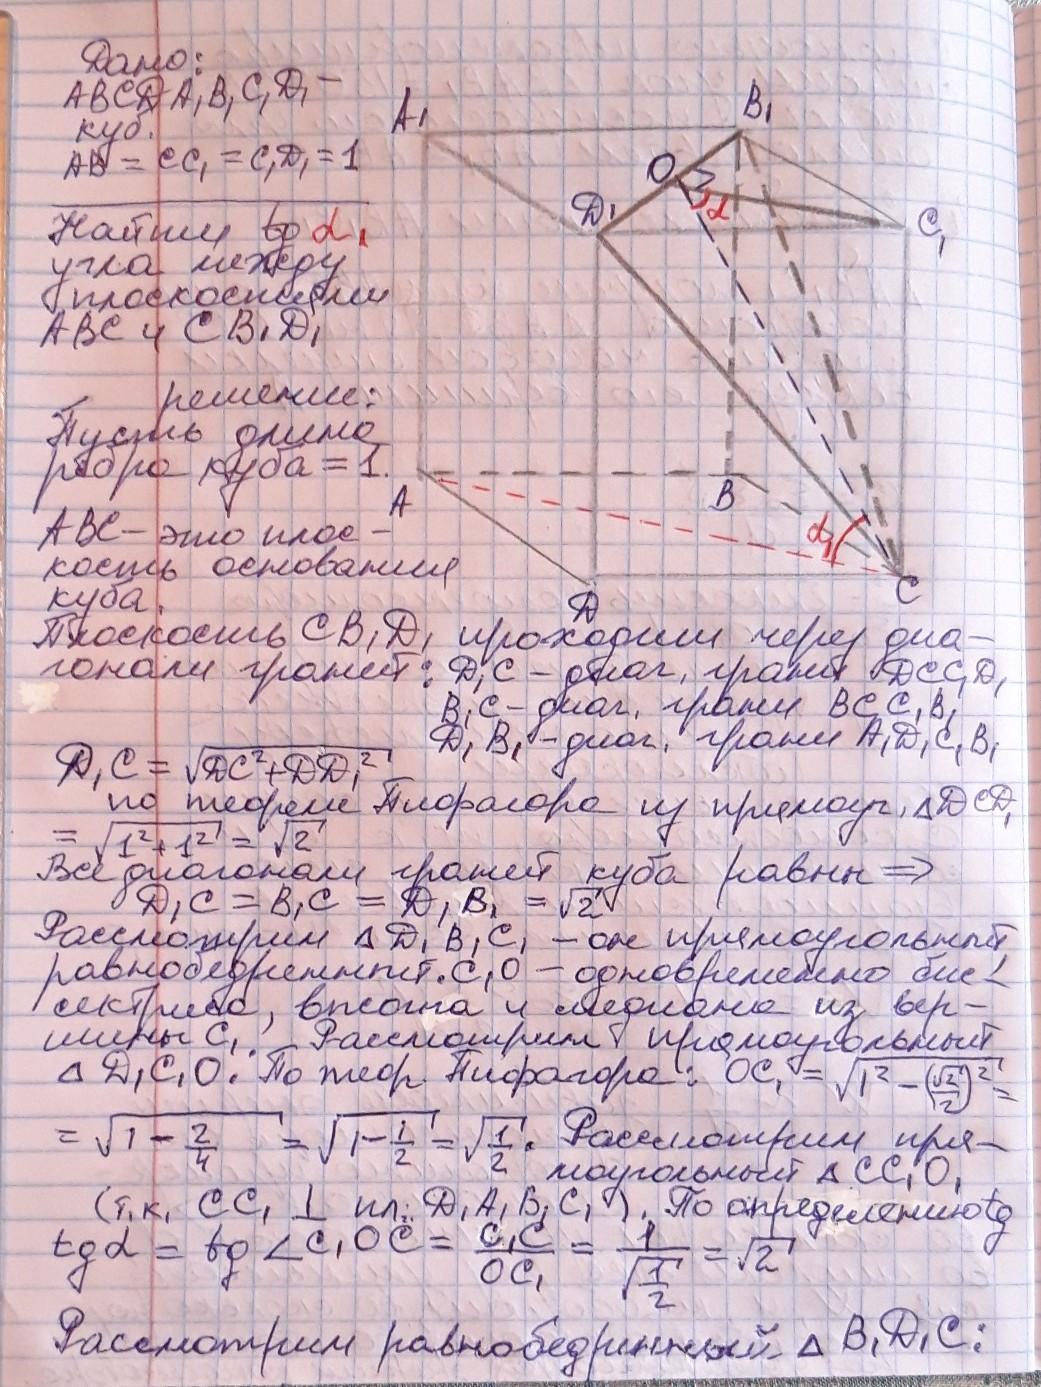 Дано:
ABCDA₁B₁C₁D₁ –
куб.
AB = CC₁ = C₁D₁ = 1
Найти tg α₁
угла между
плоскостями
ABC и CB₁D₁
решение:
Пусть длина
ребра куба = 1.
ABC – это плос-
кость основания
куба.
A₁
B₁
O
α
D₁
C₁
A
B
α₁
D
C
Плоскость CB₁D₁ проходит через диа-
гонали граней: D₁C – диаг. грани DCC₁D₁
B₁C – диаг. грани BCC₁B₁
D₁B₁ – диаг. грани A₁D₁C₁B₁
D₁C = √(DC² + DD₁²)
по теореме Пифагора из прямоуг. △DCD₁
= √(1² + 1²) = √2
Все диагонали граней куба равны ⇒
D₁C = B₁C = D₁B₁ = √2
Рассмотрим △D₁B₁C₁ – он прямоугольный,
равнобедренный. C₁O – одновременно бис-
сектриса, высота и медиана из вер-
шины C₁. Рассмотрим прямоугольный
△D₁C₁O. По теор. Пифагора: OC₁ = √(1² – (√2/2)²) =
= √(1 – 2/4) = √(1 – 1/2) = √(1/2). Рассмотрим пря-
моугольный △CC₁O,
(т.к. CC₁ ⊥ пл. D₁A₁B₁C₁). По определению tg
tg α = tg ∠C₁OC = C₁C/OC₁ = 1/√(1/2) = √2
Рассмотрим равнобедринный △B₁D₁C: